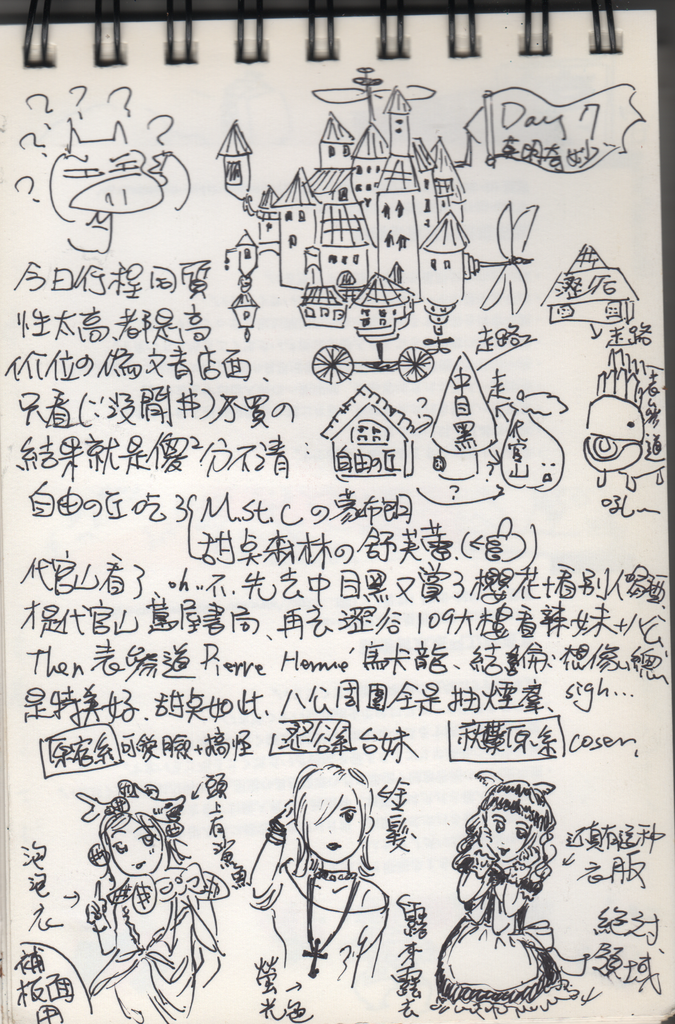 ? ? ? ? ? ?
Day 7
莫明奇妙~
今日行程同質
性太高,都是高
價位の偽文青店面、
只看(∵沒閒井)不買の
結果就是傻²分不清
澀谷
走路
走路
中目黑
走
代官山
自由の丘
? ? ? ?
表參道
吼~
自由の丘吃了 M.st.C の蒙布朗
甜点森林の舒芙蕾.(<
代官山看了、oh..不、先去中目黑又賞了櫻花+看別人
代官山蔦屋書局、再去澀谷109大樓看辣妹+八公
Then 表參道 Pierre Hermé 馬卡龍、結論:想像總
是特美好、甜点如此、八公周圍全是抽煙羣、sigh...
原宿系 可愛臉+搞怪 澀谷系 台妹 秋葉原系 coser,
頭上有鯊魚
泡泡衣
補板面用
金髮
露來露去
螢光色
還真有這种
衣服
絕对
領域